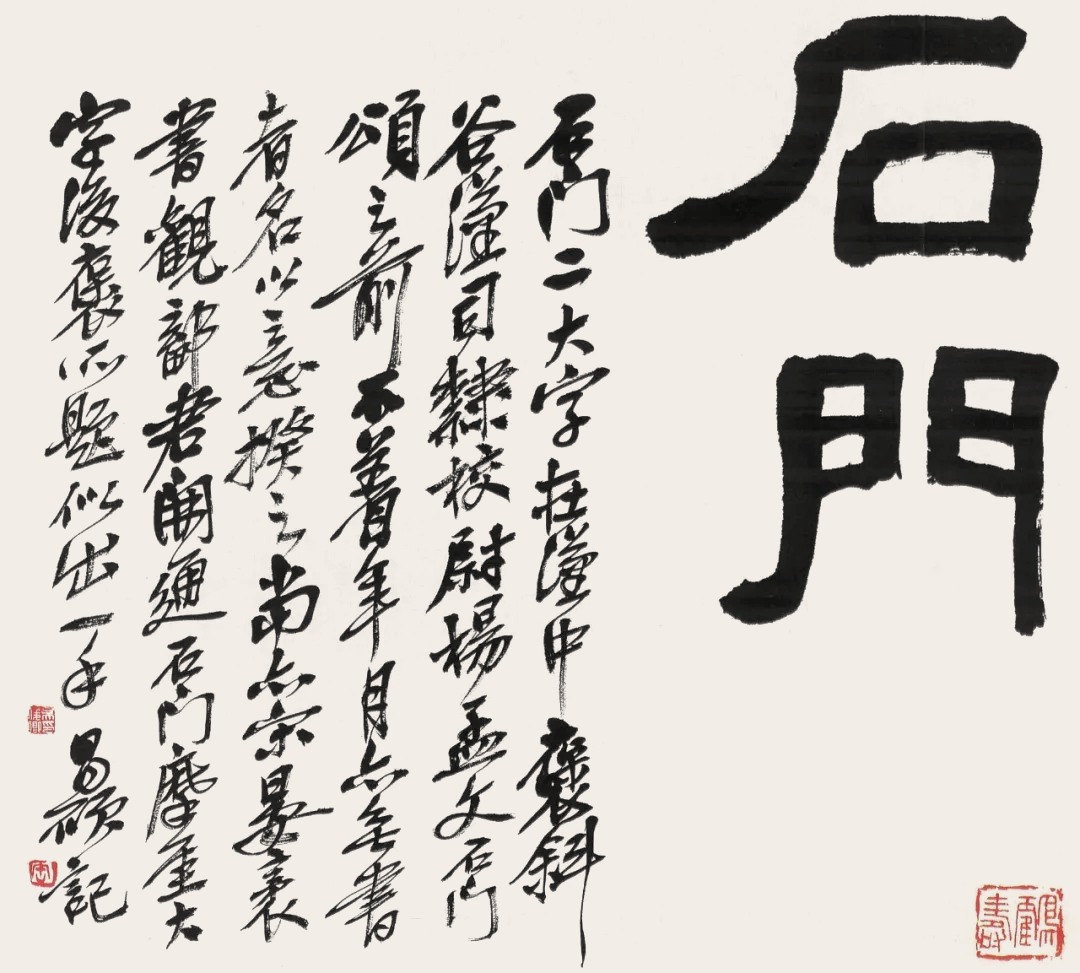 石門
石门二大字在漢中褒斜
谷漢司隸校尉楊孟文石门
頌之前不著年月亦無書
者名以意揆之當亦宋晏袤
書觀鄐君開通石门摩崖大
字後褒所題似出一手 昌碩記